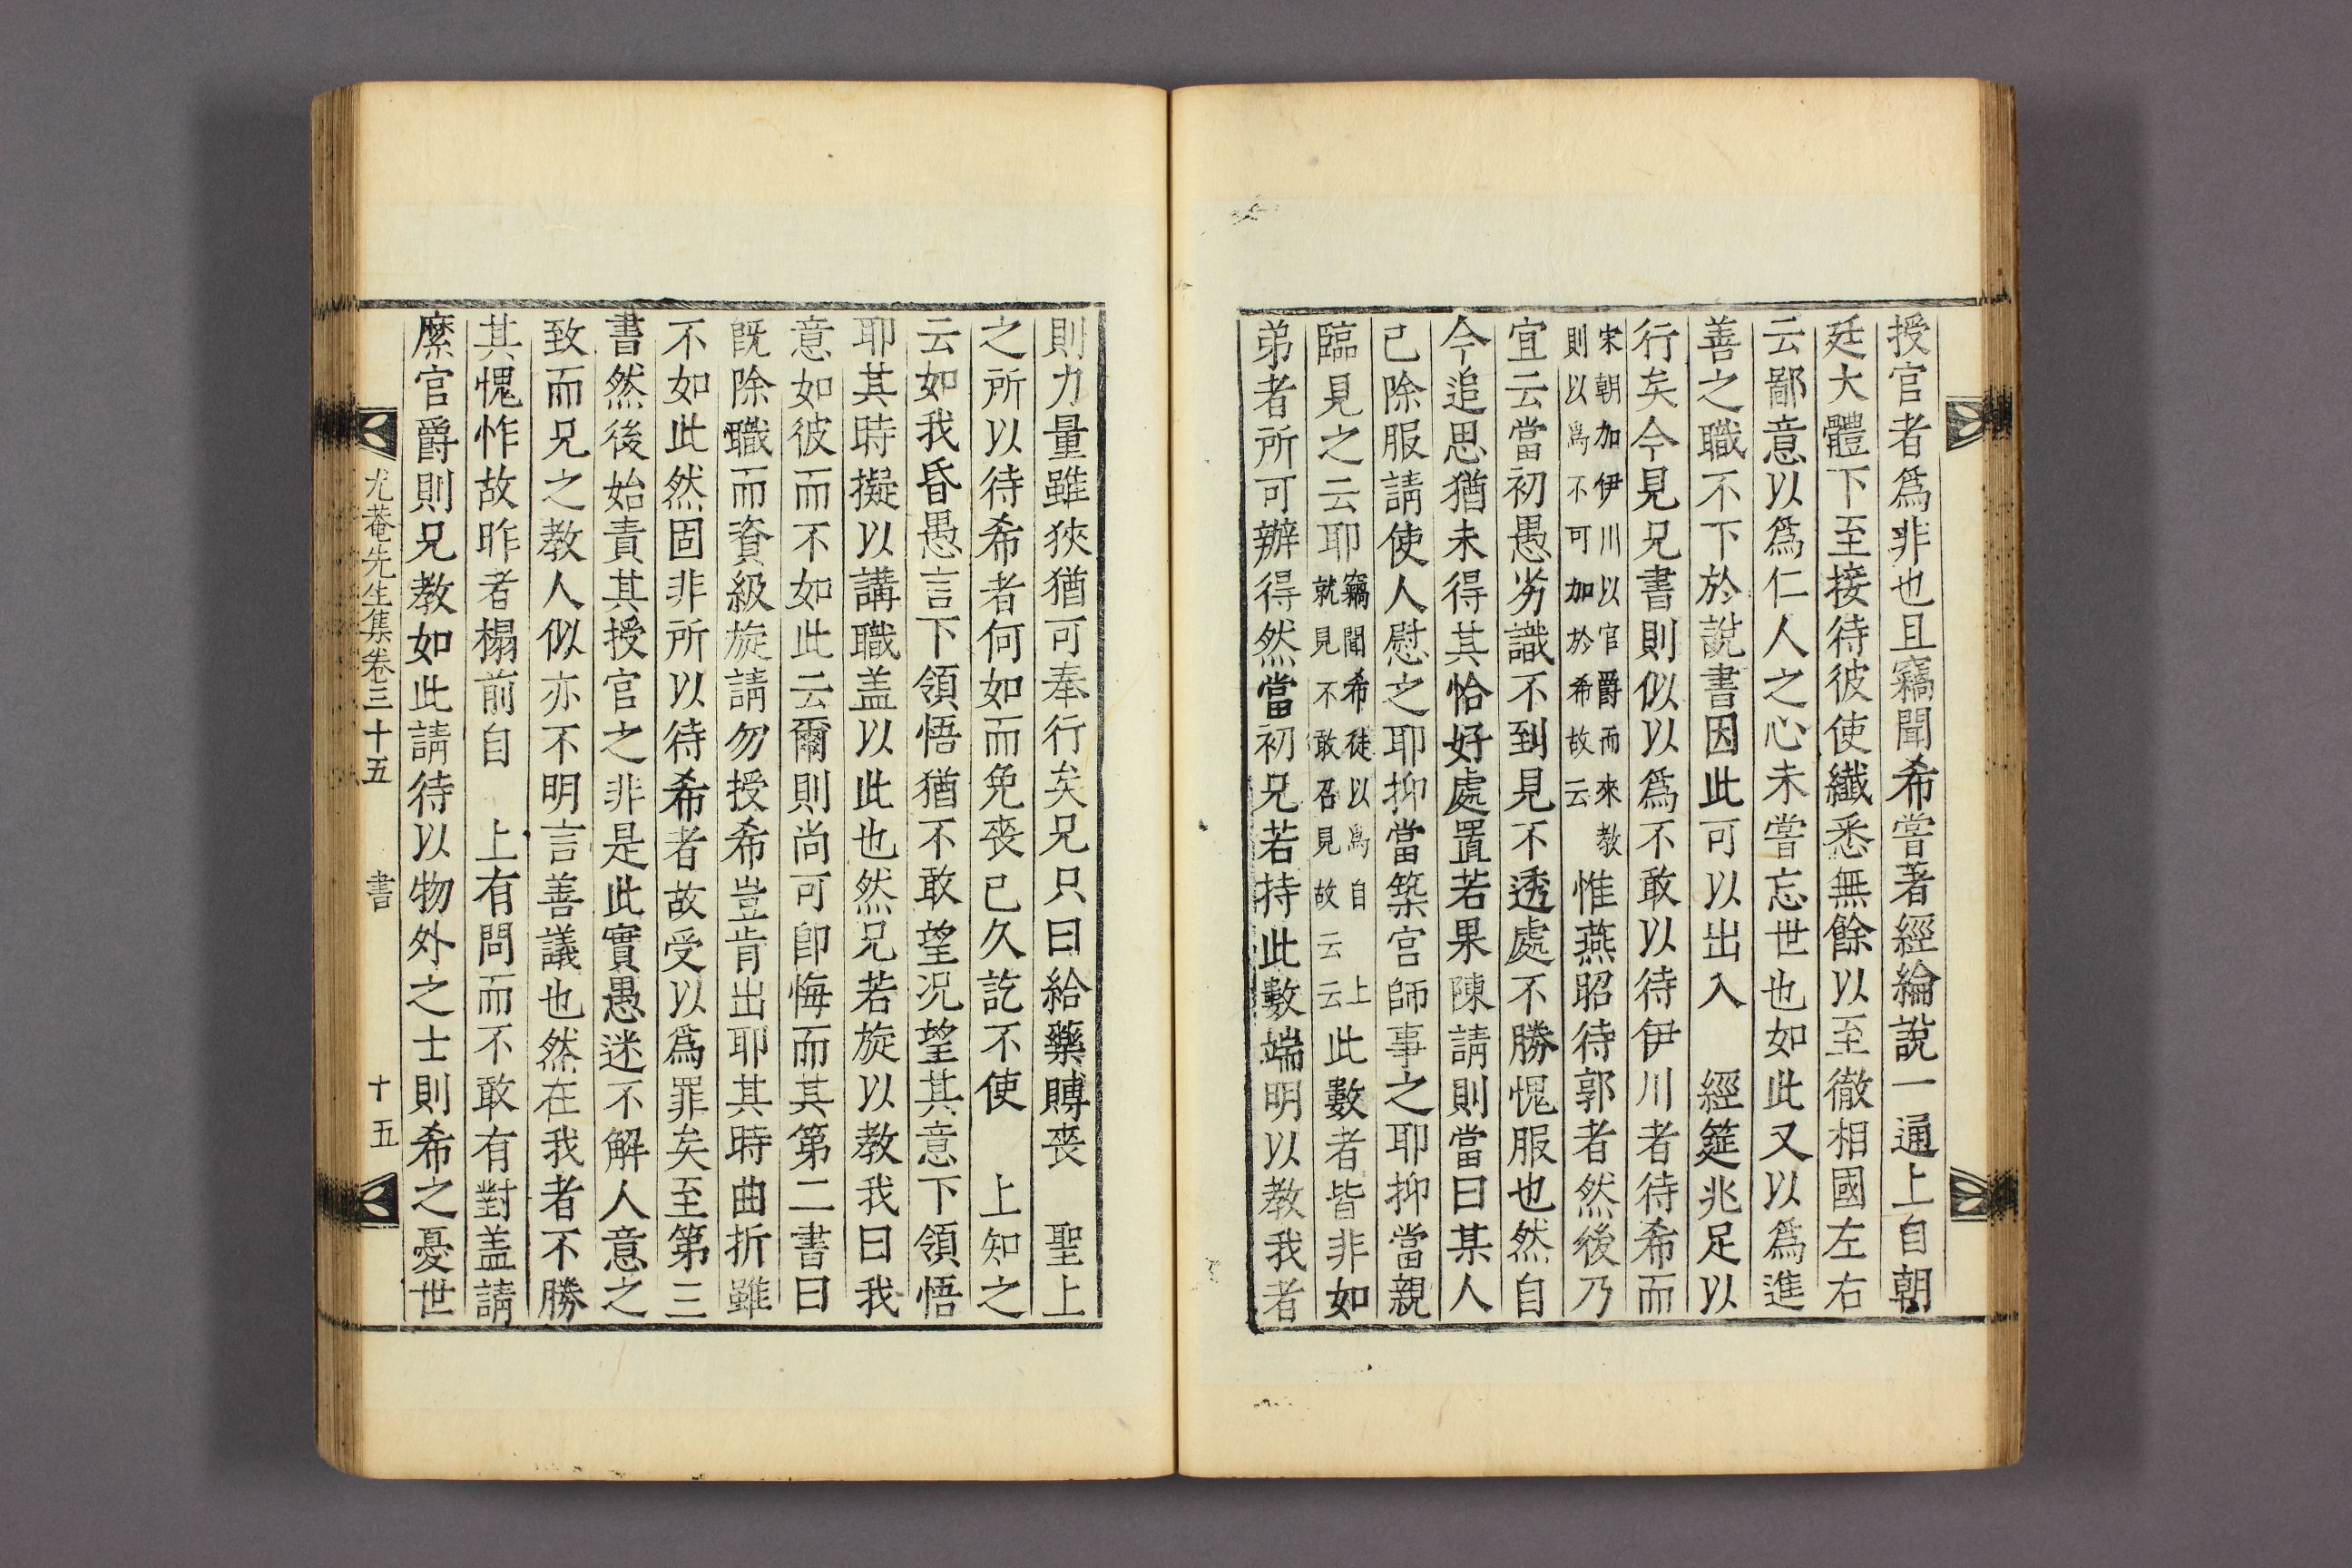 授官者爲非也且竊聞希甞著經綸說一通上自朝
廷大體下至接待彼使纖悉無餘以至徹相國左右
云鄙意以爲仁人之心未甞忘世也如此又以爲進
善之職不下於說書因此可以出入　經筵兆足以
行矣今見兄書則似以爲不敢以待伊川者待希而
宋朝加伊川以官爵而來教
則以爲不可加於希故云
惟燕昭待郭者然後乃
宜云當初愚劣識不到見不透處不勝愧服也然自
今追思猶未得其恰好處置若果陳請則當曰某人
已除服請使人慰之耶抑當築宮師事之耶抑當親
臨見之云耶
竊聞希徒以爲自　上
就見不敢召見故云云
此數者皆非如
弟者所可辦得然當初兄若持此數端明以教我者
則力量雖狹猶可奉行矣兄只曰給藥賻喪　聖上
之所以待希者何如而免喪已久訖不使　上知之
云如我昏愚言下領悟猶不敢望況望其意下領悟
耶其時擬以講職盖以此也然兄若旋以教我曰我
意如彼而不如此云爾則尚可卽悔而其第二書曰
旣除職而資級旋請勿授希豈肯出耶其時曲折雖
不如此然固非所以待希者故受以爲罪矣至第三
書然後始責其授官之非是此實愚迷不解人意之
致而兄之教人似亦不明言善議也然在我者不勝
其愧怍故昨者榻前自　上有問而不敢有對盖請
縻官爵則兄教如此請待以物外之士則希之憂世
尤菴先生集卷三十五　書　十五